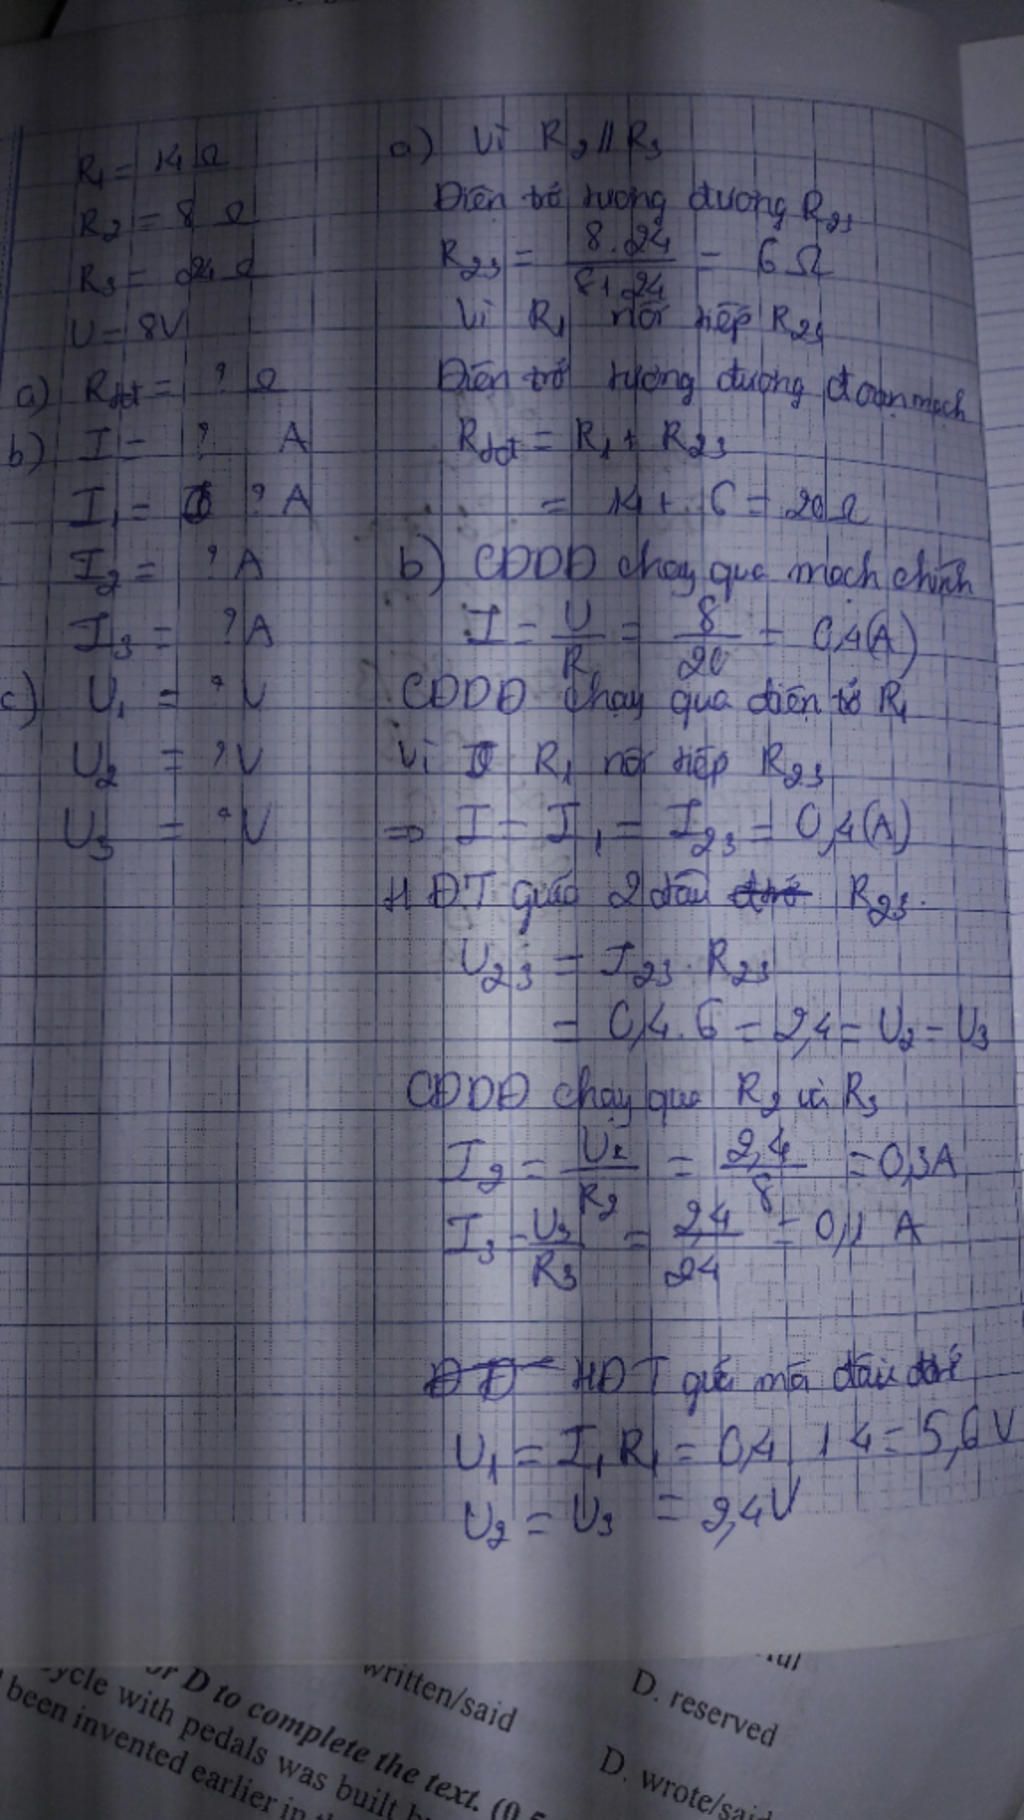 R₁ = 14 Ω
R₂ = 8 Ω
R₃ = 24 Ω
U = 8V
a) Rtđ = ? Ω
b) I = ? A
I₁ = ? A
I₂ = ? A
I₃ = ? A
c) U₁ = ? V
U₂ = ? V
U₃ = ? V
a) Vì R₂ // R₃
Điện trở tương đương R₂₃
R₂₃ = 8.24 / 8+24 = 6 Ω
Vì R₁ nối tiếp R₂₃
Điện trở tương đương đoạn mạch
Rtđ = R₁ + R₂₃
= 14 + 6 = 20 Ω
b) CĐDĐ chạy qua mạch chính
I = U / R = 8 / 20 = 0,4(A)
CĐDĐ chạy qua điện trở R₁
Vì R₁ nối tiếp R₂₃
=> I = I₁ = I₂₃ = 0,4(A)
HĐT giữa 2 đầu R₂₃.
U₂₃ = I₂₃. R₂₃
= 0,4. 6 = 2,4 = U₂ = U₃
CĐDĐ chạy qua R₂ và R₃
I₂ = U₂ / R₂ = 2,4 / 8 = 0,3A
I₃ = U₃ / R₃ = 2,4 / 24 = 0,1 A
HĐT giữa mỗi đầu
U₁ = I₁ R₁ = 0,4 14 = 5,6 V
U₂ = U₃ = 2,4V
or D to complete the text. (0.5
ycle with pedals was built b
been invented earlier in th
written/said
D. reserved
D. wrote/said